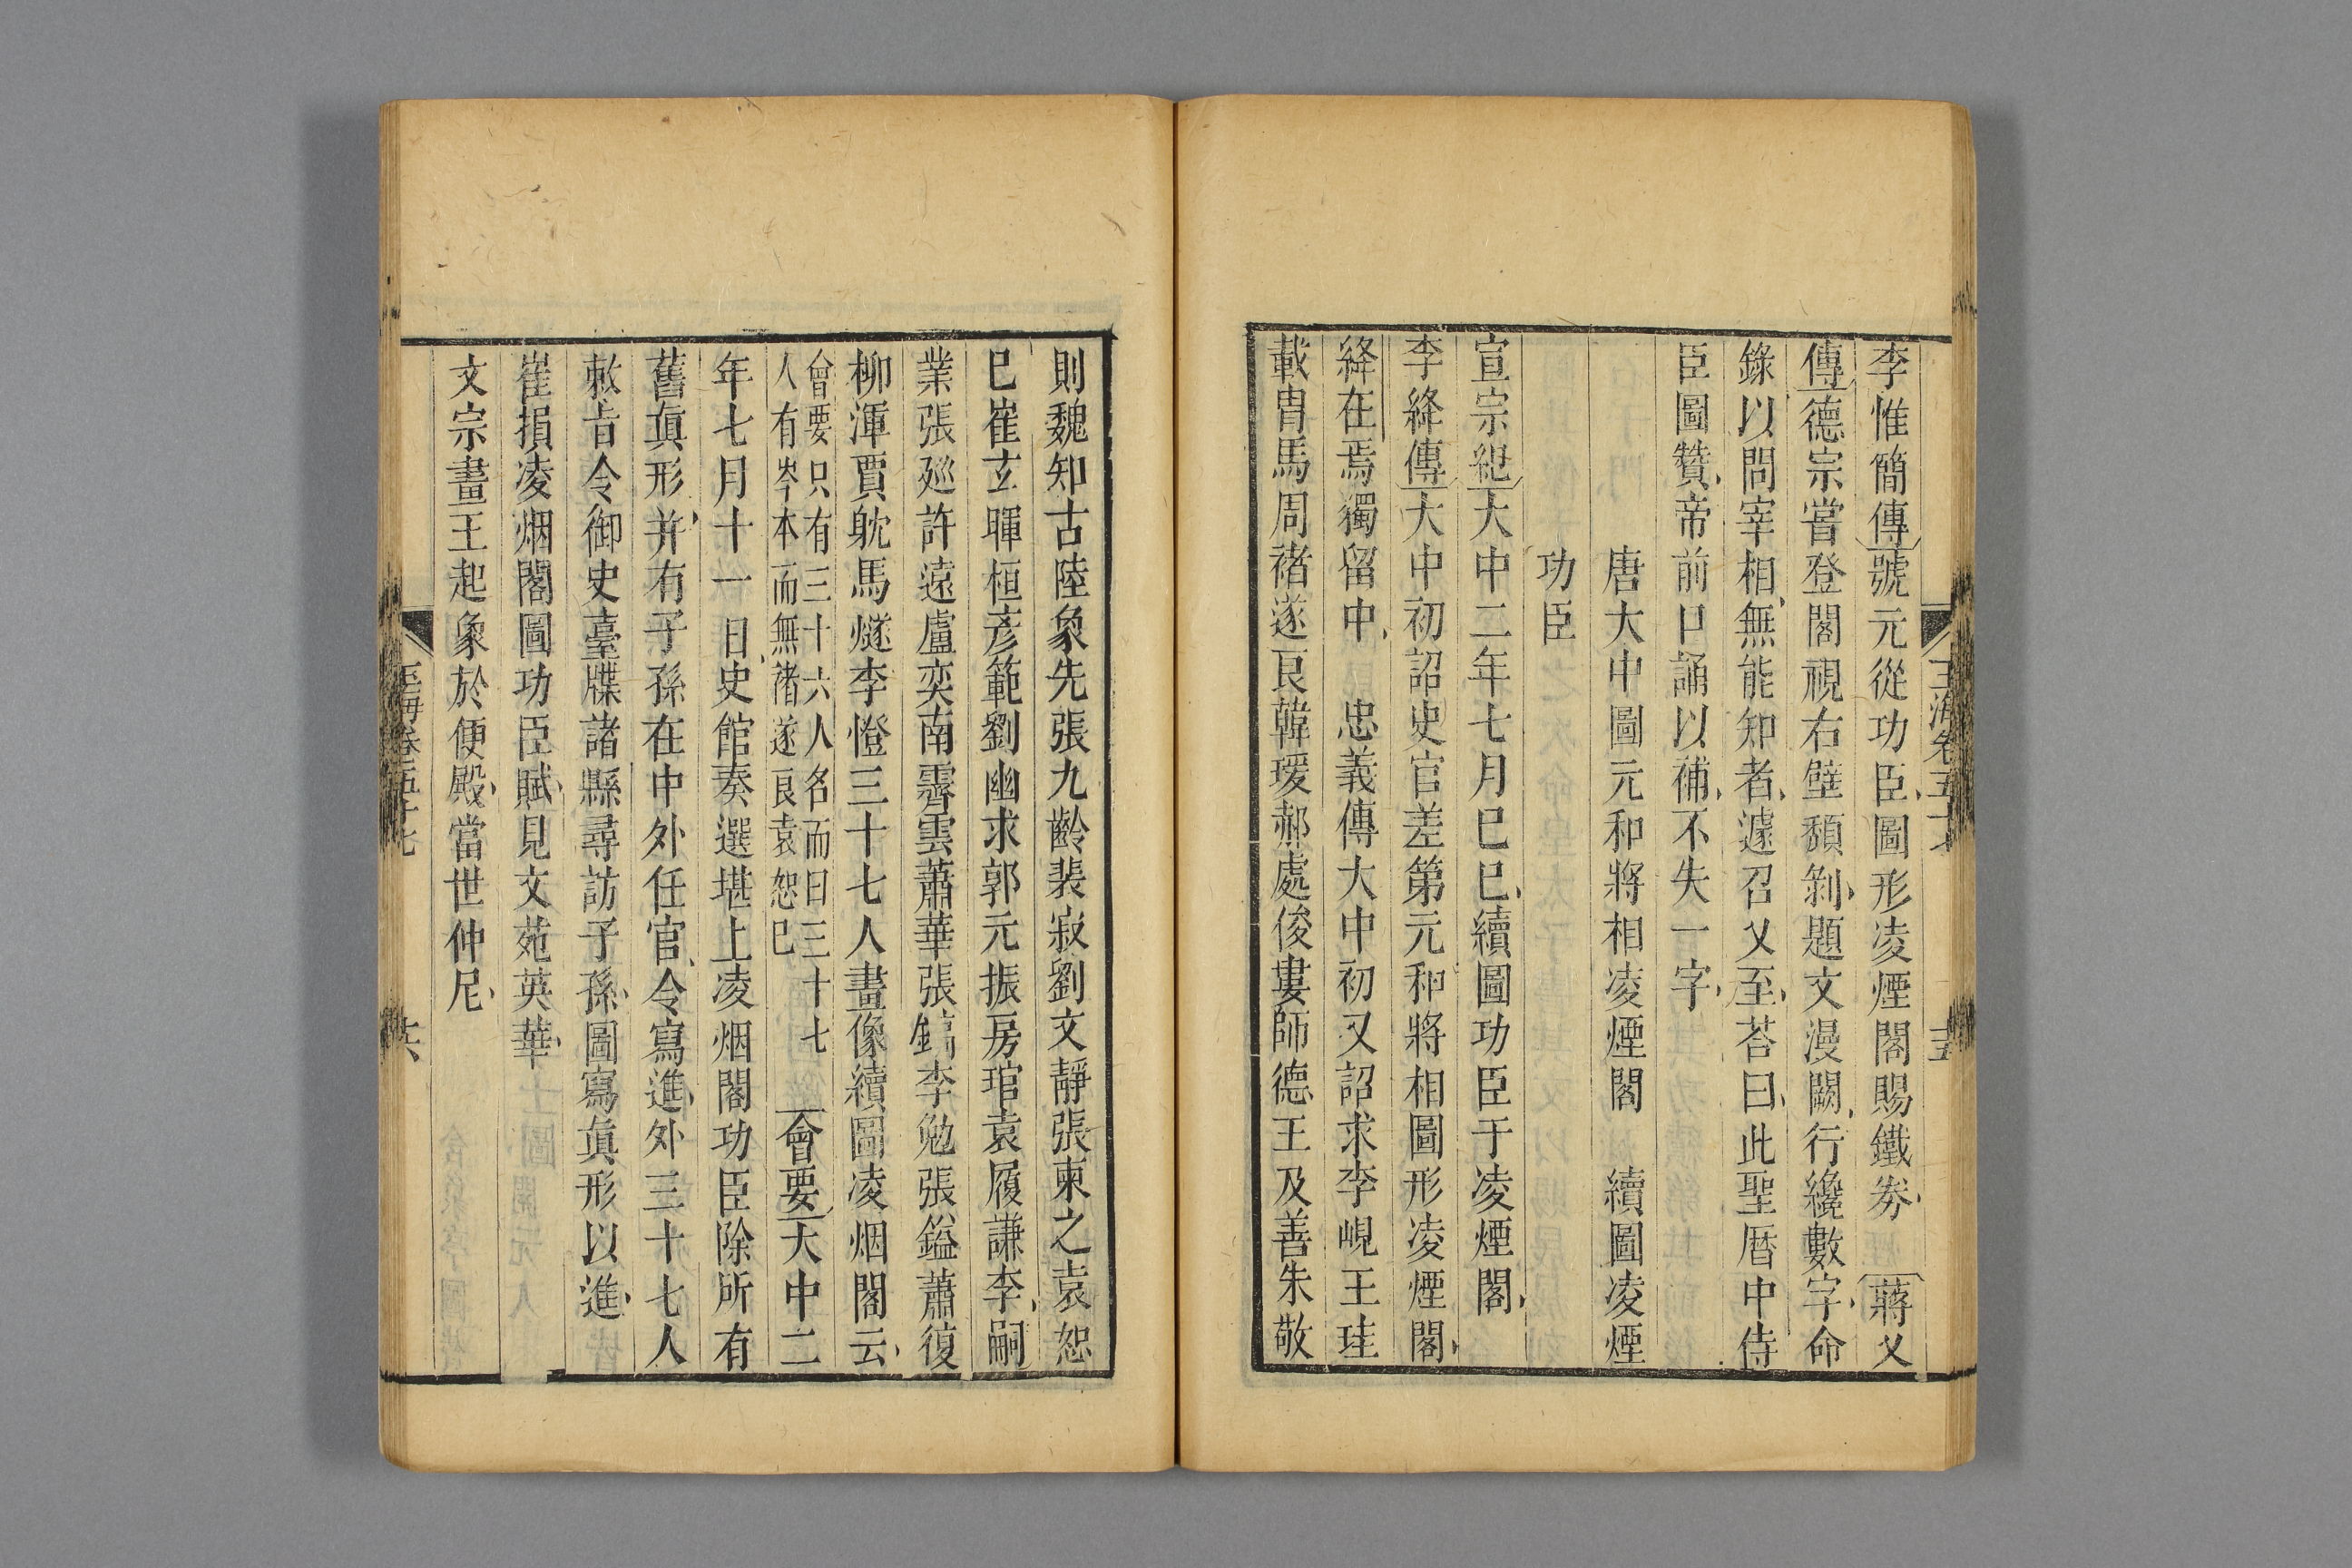 李惟簡傳號元從功臣圖形凌煙閣賜鐵券 蔣乂
傳德宗嘗登閣視右壁頹剝題文漫闕行纔數字命
錄以問宰相無能知者遽召乂至荅曰此聖曆中侍
臣圖贊帝前口誦以補不失一字
唐大中圖元和將相凌煙閣 續圖凌煙
功臣
宣宗紀大中二年七月己巳續圖功臣于凌煙閣
李絳傳大中初詔史官差第元和將相圖形凌煙閣
絳在焉獨留中 忠義傳大中初又詔求李峴王珪
戴胄馬周褚遂良韓瑗郝處俊婁師德王及善朱敬
則魏知古陸象先張九齡裴寂劉文靜張柬之袁恕
己崔玄暉桓彥範劉幽求郭元振房琯袁履謙李嗣
業張廵許遠盧奕南霽雲蕭華張鎬李勉張鎰蕭復
柳渾賈躭馬燧李憕三十七人畫像續圖凌烟閣云
會要只有三十六人名而曰三十七
人有岑本而無褚遂良袁恕已
會要大中二
年七月十一日史館奏選堪上凌烟閣功臣除所有
舊眞形并有子孫在中外任官令寫進外三十七人
敕旨令御史臺牒諸縣尋訪子孫圖寫眞形以進
崔損凌烟閣圖功臣賦見文苑英華
文宗畫王起象於便殿當世仲尼
玉海卷五十七
十五
玉海卷五十七
十六